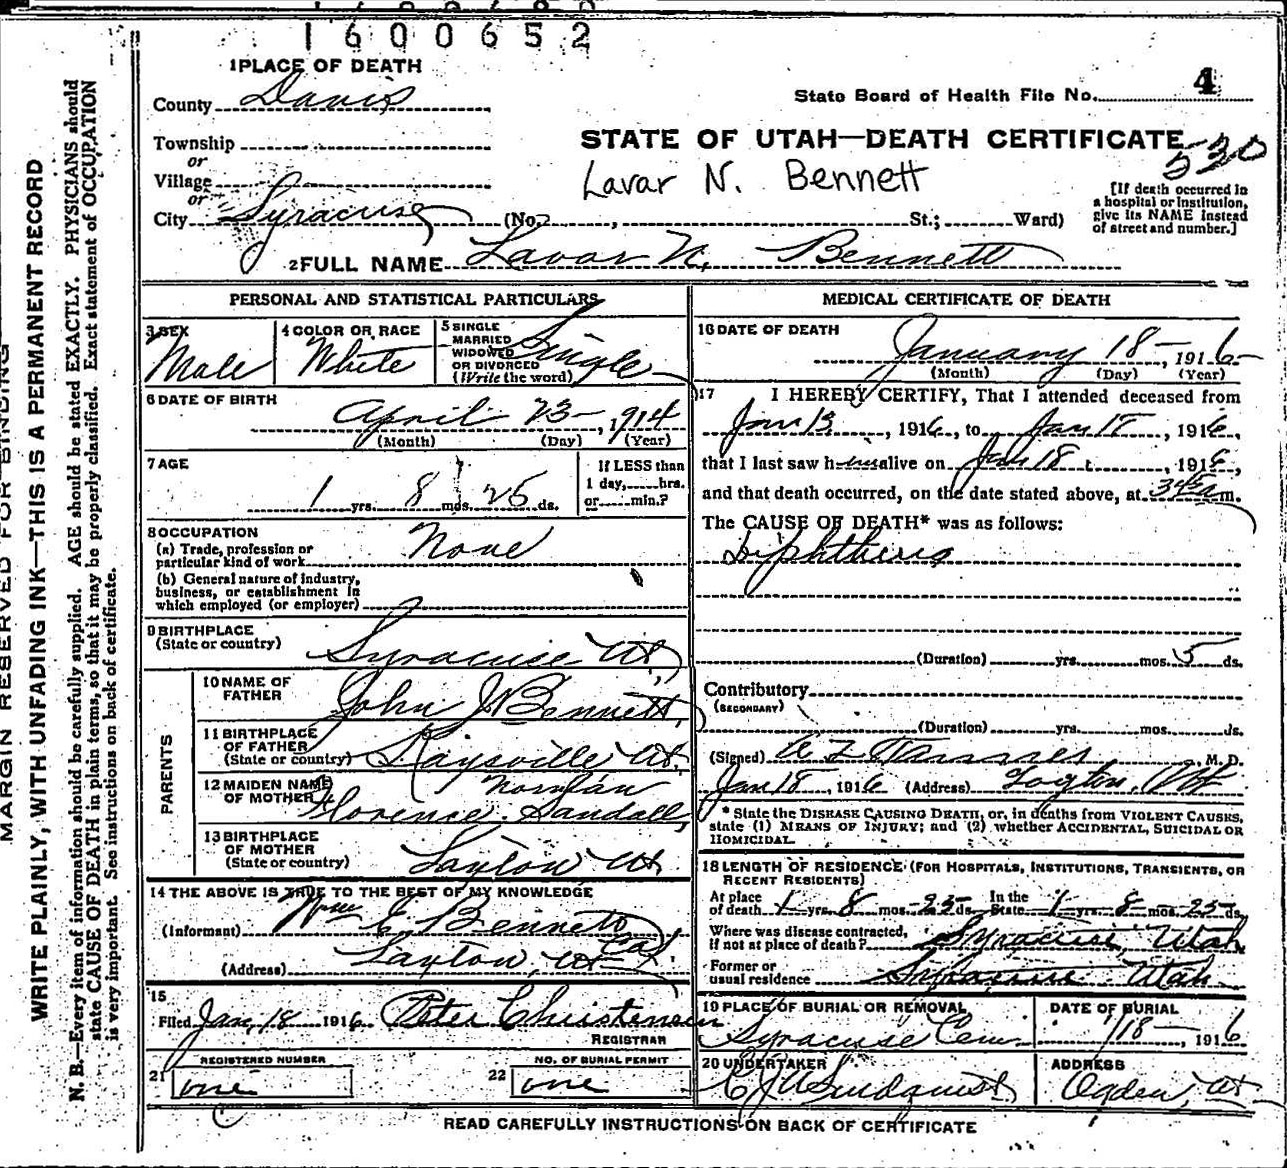 1600652
1 PLACE OF DEATH
County Davis
State Board of Health File No. 4
Township
or
Village
or
City Syracuse (No. , St.; Ward)
STATE OF UTAH—DEATH CERTIFICATE
530
Lavar N. Bennett
[If death occurred in
a hospital or institution,
give its NAME instead
of street and number.]
2 FULL NAME Lavar N. Bennett
MARGIN RESERVED FOR BINDING
WRITE PLAINLY, WITH UNFADING INK—THIS IS A PERMANENT RECORD
N. B.—Every item of information should be carefully supplied. AGE should be stated EXACTLY. PHYSICIANS should
state CAUSE OF DEATH in plain terms, so that it may be properly classified. Exact statement of OCCUPATION
is very important. See instructions on back of certificate.
PERSONAL AND STATISTICAL PARTICULARS
3 SEX
Male
4 COLOR OR RACE
White
5 SINGLE
MARRIED
WIDOWED
OR DIVORCED
(Write the word)
Single
6 DATE OF BIRTH
April 23, 1914
(Month) (Day) (Year)
7 AGE
1 yrs. 8 mos. 25 ds.
If LESS than
1 day, hrs.
or min.?
8 OCCUPATION
(a) Trade, profession or
particular kind of work None
(b) General nature of industry,
business, or establishment in
which employed (or employer)
9 BIRTHPLACE
(State or country) Syracuse Ut,
PARENTS
10 NAME OF
FATHER John J Bennett,
11 BIRTHPLACE
OF FATHER
(State or country) Kaysville Ut,
12 MAIDEN NAME
OF MOTHER Norman
Florence Sandall,
13 BIRTHPLACE
OF MOTHER
(State or country) Layton Ut
14 THE ABOVE IS TRUE TO THE BEST OF MY KNOWLEDGE
(Informant) Wm E. Bennett
(Address) Layton, Ut
15
Filed Jan, 18 1916 Peter Christensen
REGISTRAR
REGISTERED NUMBER
21 one
NO. OF BURIAL PERMIT
22 one
MEDICAL CERTIFICATE OF DEATH
16 DATE OF DEATH
January 18—, 1916—
(Month) (Day) (Year)
17 I HEREBY CERTIFY, That I attended deceased from
Jan 13, 1916, to Jan 18, 1916,
that I last saw him alive on Jan 18, 1916,
and that death occurred, on the date stated above, at m.
The CAUSE OF DEATH* was as follows:
Diphtheria
(Duration) yrs. mos. 5 ds.
Contributory
(SECONDARY)
(Duration) yrs. mos. ds.
(Signed) A Z Tanner, M. D.
Jan 18, 1916 (Address) Layton, Ut
* State the DISEASE CAUSING DEATH, or, in deaths from VIOLENT CAUSES,
state (1) MEANS OF INJURY; and (2) whether ACCIDENTAL, SUICIDAL OR
HOMICIDAL.
18 LENGTH OF RESIDENCE (FOR HOSPITALS, INSTITUTIONS, TRANSIENTS, OR
RECENT RESIDENTS)
At place
of death 1 yrs. 8 mos. 25 ds. In the
State 1 yrs. 8 mos. 25 ds.
Where was disease contracted,
if not at place of death? Syracuse, Utah
Former or
usual residence Syracuse Utah
19 PLACE OF BURIAL OR REMOVAL
Syracuse Cem
DATE OF BURIAL
1/18—, 1916
20 UNDERTAKER
Lindquist
ADDRESS
Ogden, Ut
READ CAREFULLY INSTRUCTIONS ON BACK OF CERTIFICATE